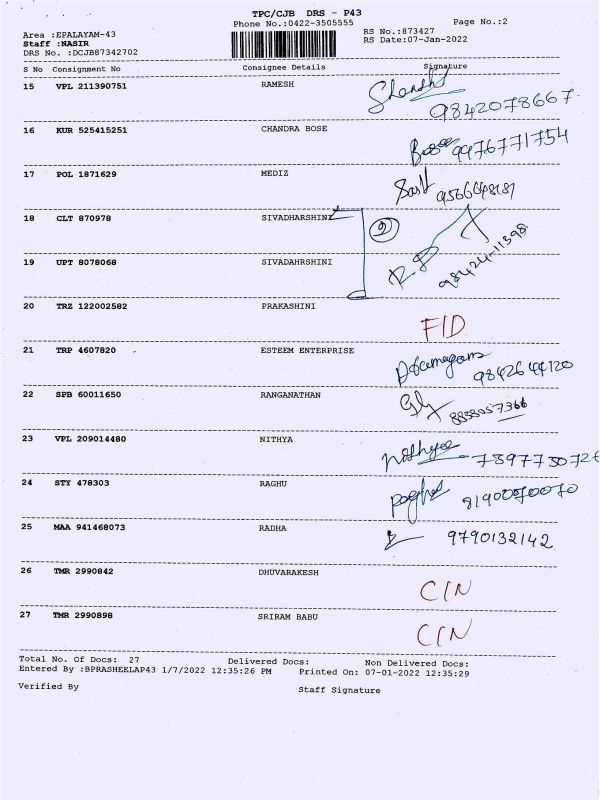 TPC/CJB DRS - P43
Phone No.:0422-3505555 Page No.:2
Area :EPALAYAM-43 RS No.:873427
Staff :NASIR RS Date:07-Jan-2022
DRS No. :DCJB87342702
S No Consignment No Consignee Details Signature
15 VPL 211390751 RAMESH
9842078667
16 KUR 525415251 CHANDRA BOSE
Bose 9976771754
17 POL 1871629 MEDIZ
9566648181
18 CLT 870978 SIVADHARSHINI
2
19 UPT 8078068 SIVADAHRSHINI
98424-11398
20 TRZ 122002582 PRAKASHINI
FID
21 TRP 4607820 ESTEEM ENTERPRISE
9842644120
22 SPB 60011650 RANGANATHAN
8838057366
23 VPL 209014480 NITHYA
Nithya 7397730726
24 STY 478303 RAGHU
Raghu 8190070070
25 MAA 941468073 RADHA
9790132142
26 TMR 2990842 DHUVARAKESH
CIN
27 TMR 2990898 SRIRAM BABU
CIN
Total No. Of Docs: 27 Delivered Docs: Non Delivered Docs:
Entered By :BPRASHEELAP43 1/7/2022 12:35:26 PM Printed On: 07-01-2022 12:35:29
Verified By Staff Signature